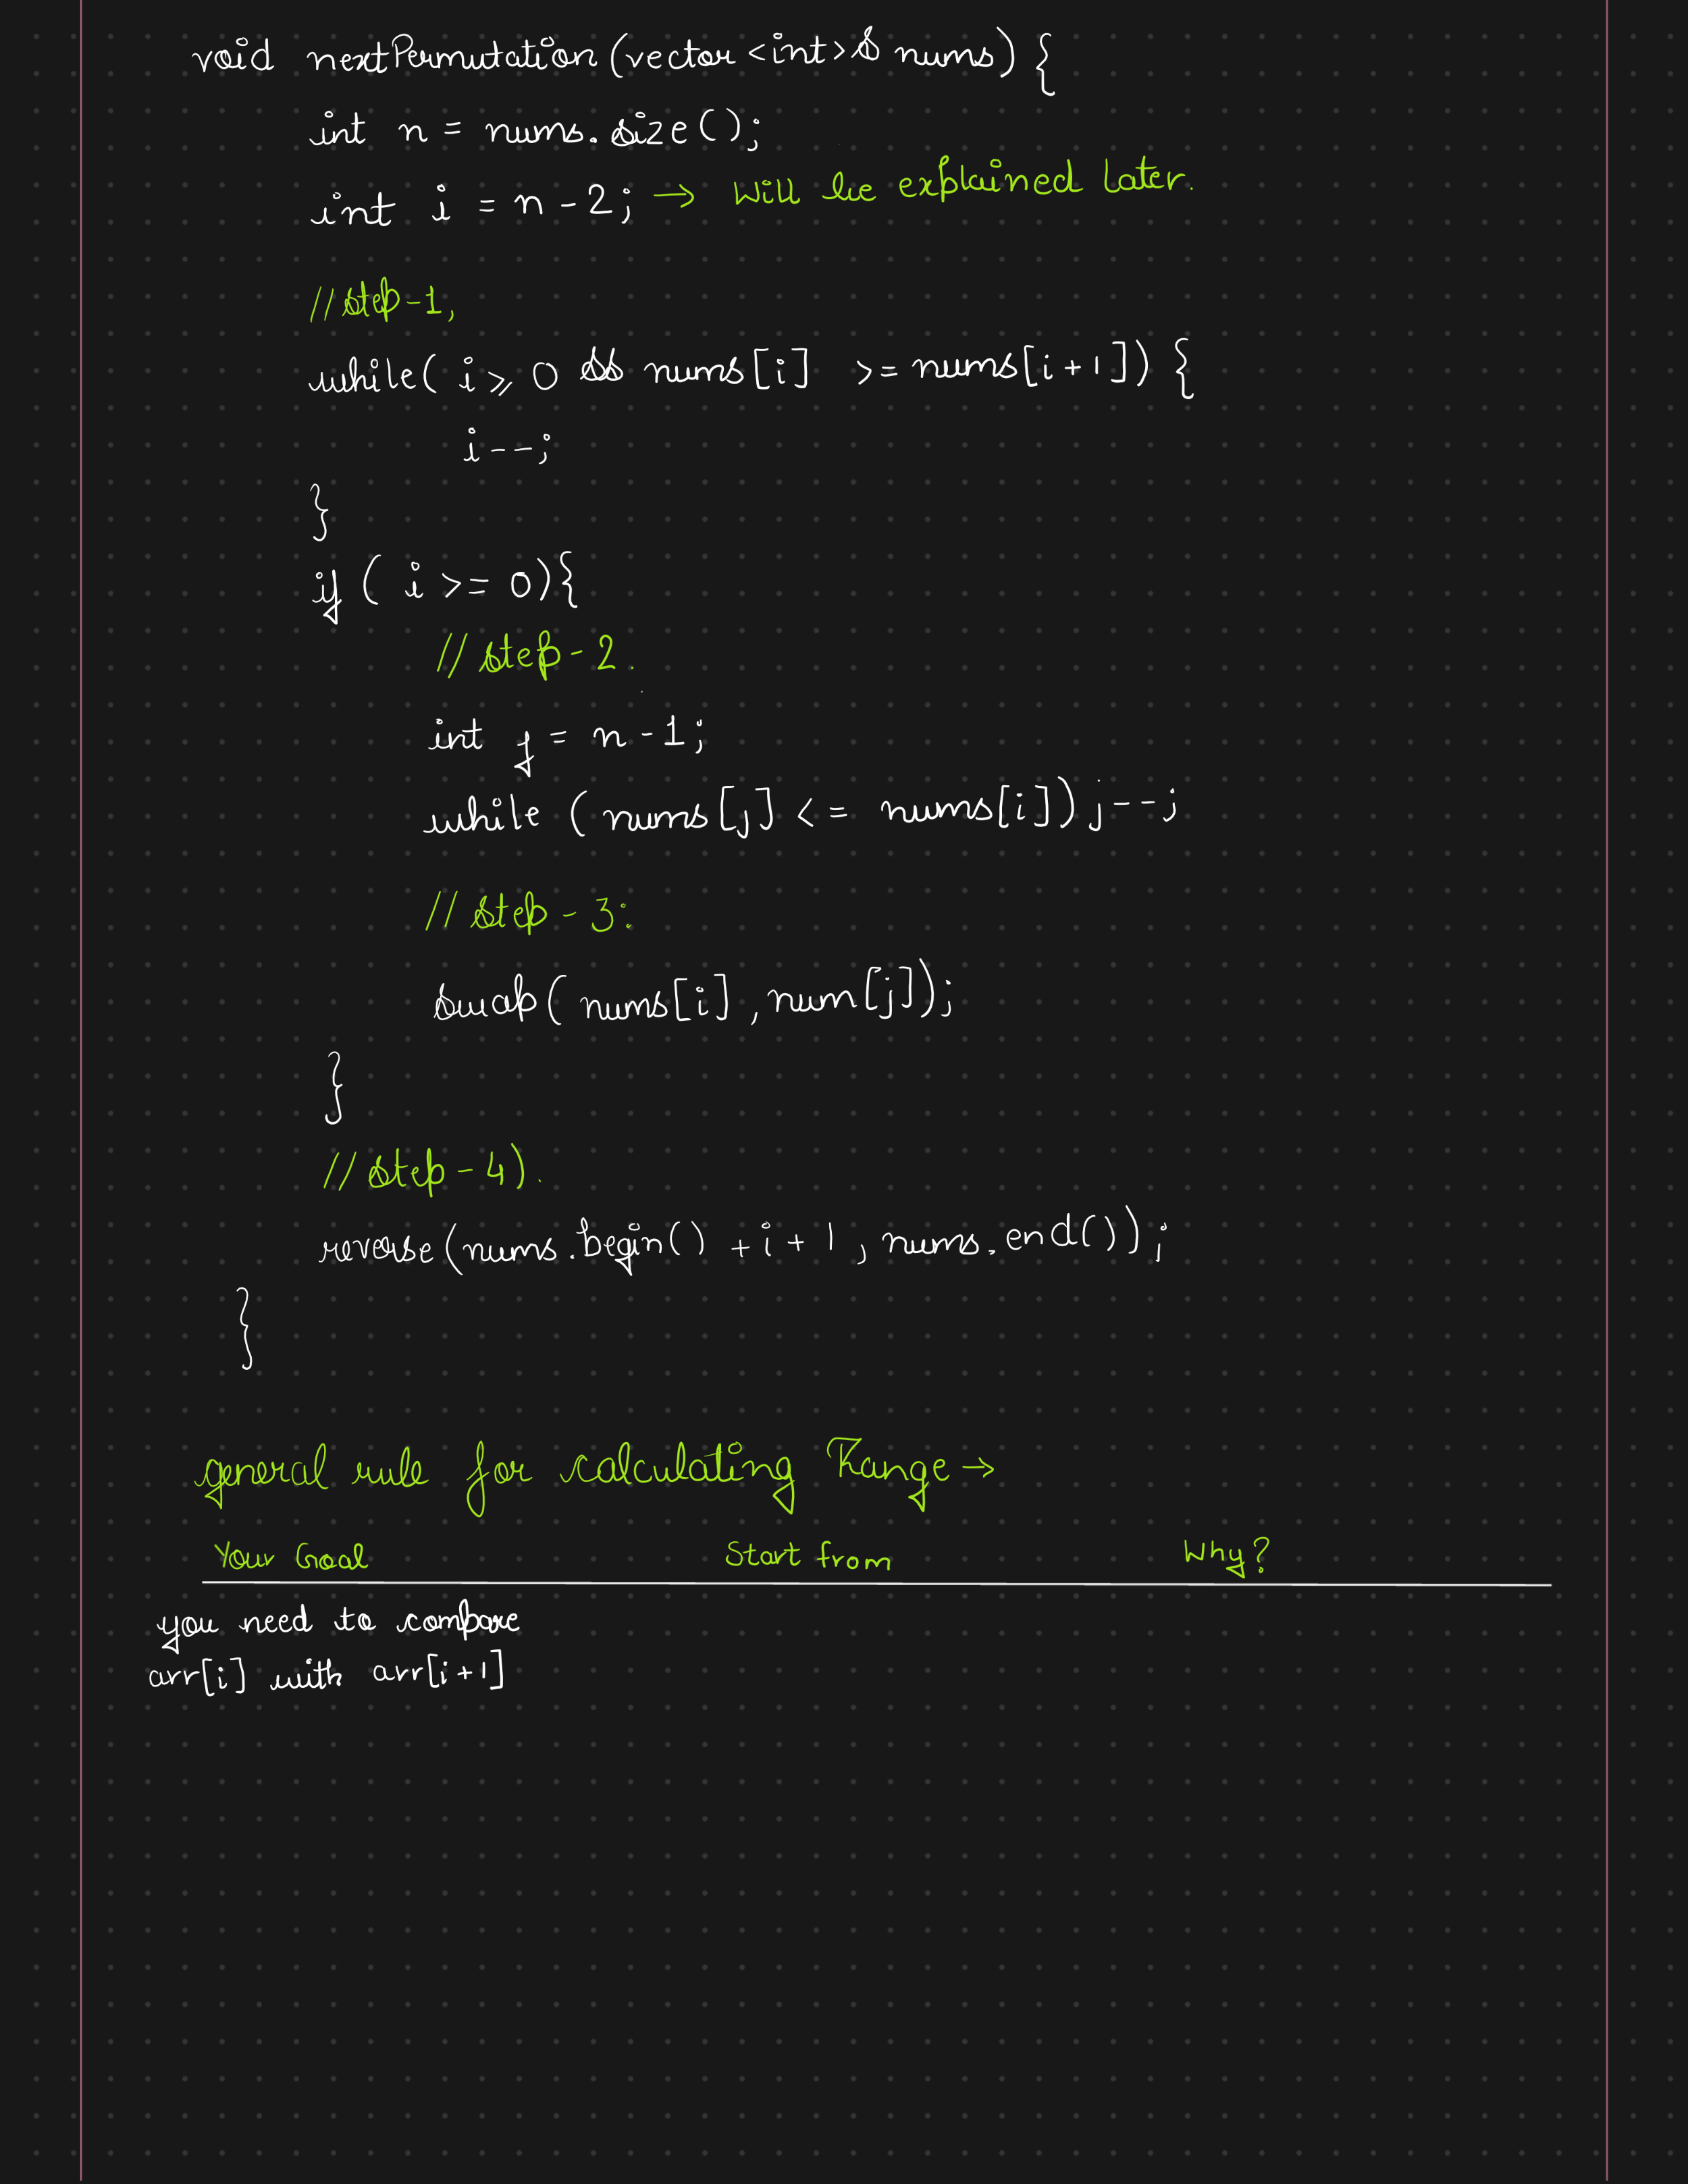 void nextPermutation (vector <int>& nums) {
int n = nums.size();
int i = n-2; → Will be explained later.
//step-1,
while( i ⩾ 0 && nums[i] >= nums[i+1]) {
i--;
}
if ( i >= 0){
// step-2.
int j = n-1;
while (nums[j] <= nums[i]) j--;
// step-3:
swap( nums[i], num[j]);
}
// step-4).
reverse(nums.begin() + i + 1, nums.end());
}
general rule for calculating Range →
Your Goal Start from Why?
you need to compare
arr[i] with arr[i+1]